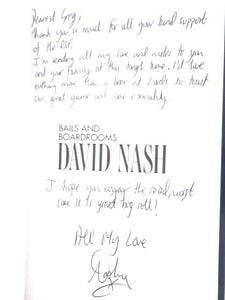 Dearest Greg,
Thank you so much for all your kind support
of the RSF.
I'm sending all my love and wishes to you
and your family at this tough time. I'd love
nothing more than a beer at Lord's to toast
our great game and love
BAILS AND
BOARDROOMS
DAVID NASH
I hope you enjoy the read, worst
case it is great bog roll!
All My Love